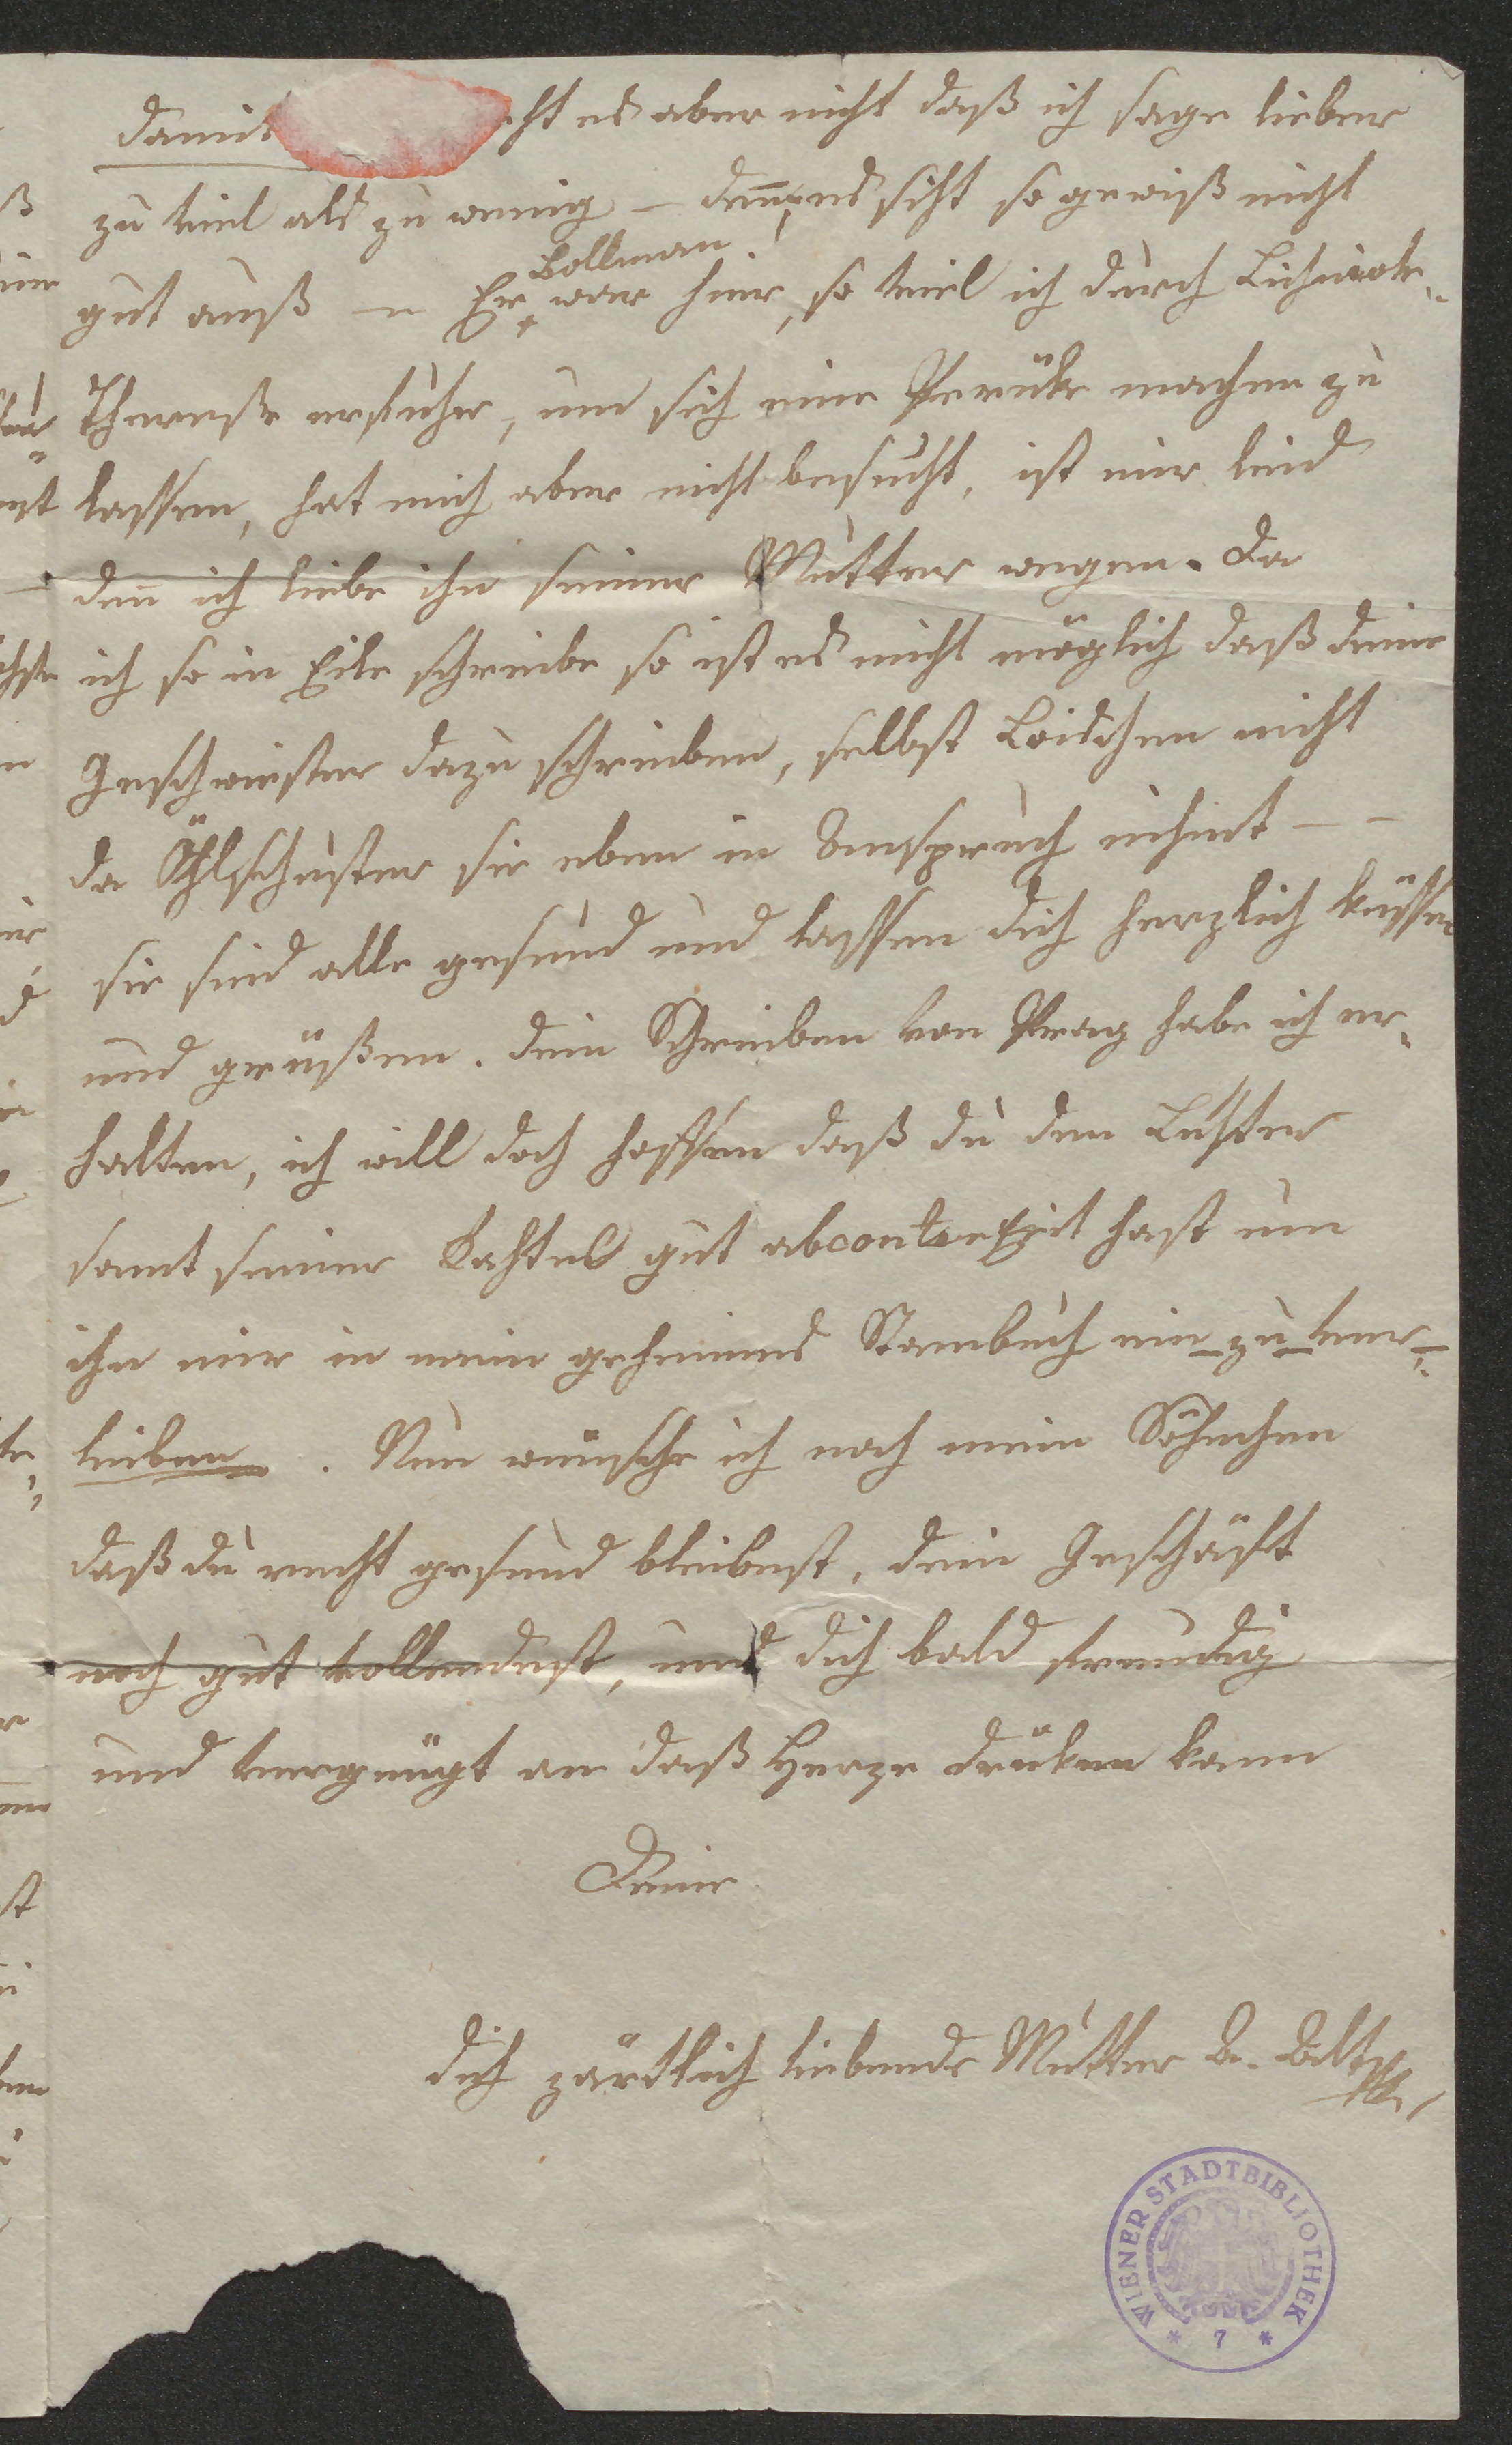 damit cht es aber nicht daß ich sage lieber
zu viel als zu wenig – den̄ es siht so gewiß nicht
gut auß – Er Bollman war hier, so viel ich durch
Thereße ersuhr, um sich eine Perüke machen zu
lassen, hat mich aber nicht besucht, ist mir leid
den̄ ich liebe ihn seiner Mutter wegen. Da
ich so in Eile schreibe so ist es nicht möglich daß deine
Geschwister dazu schreiben, selbst Loischen nicht
da Öhlschuster sie eben in Anspruch nihmt – –
sie sind alle gesund und lassen dich herzlich küssen
und grüßen. dein Schreiben von Prag habe ich er-
halten, ich will doch hoffen daß du den Luster
samt seiner gut abconterfeit hast um
ihn mir in mein geheimes Stambuch ein zu ver-
leiben. Nun wünsche ich noch mein Söhnchen
daß du recht gesund bleibest, dein Geschäft
noch gut vollendest, und dich bald freudig
und vergnügt an daß Herze drüken kann
Deine
dich zärtlich liebende Mutter A. Alt
WIENER STADTBIBLIOTHEK
* 7 *